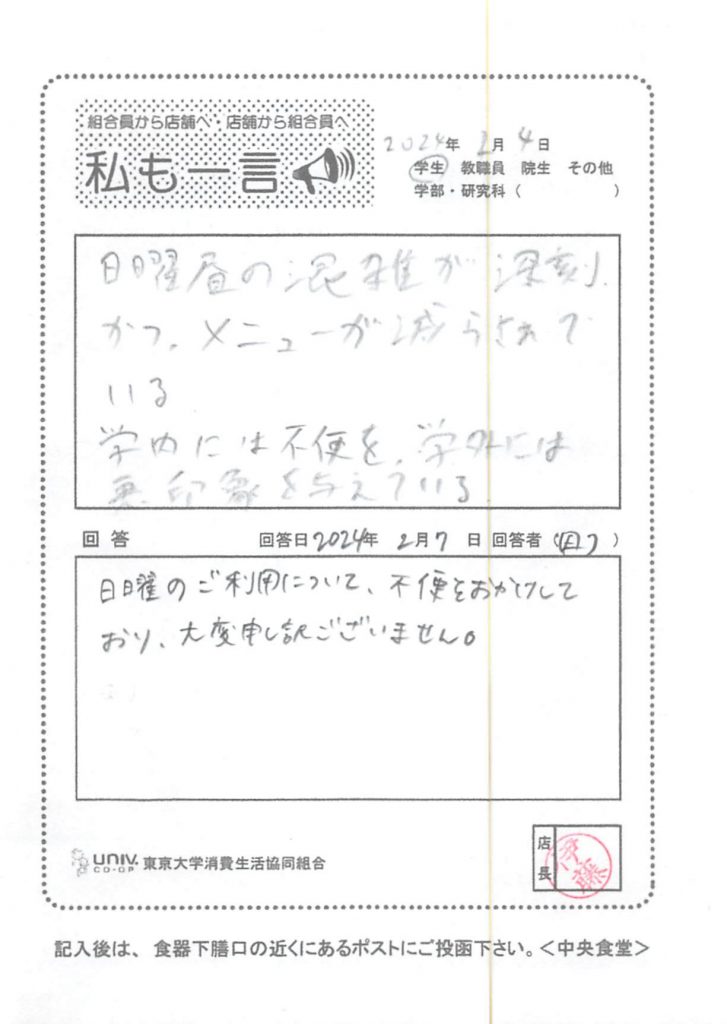 組合員から店舗へ・店舗から組合員へ
私も一言
2024年 2月 4日
学生 教職員 院生 その他
学部・研究科( )
日曜昼の混雑が深刻、
かつ、メニューが減らされて
いる
学内には不便を、学外には
悪印象を与えている
回答 回答日2024年 2月7日 回答者( )
日曜のご利用について、不便をおかけして
おり、大変申し訳ございません。
店長
伊藤
univ. CO-OP 東京大学消費生活協同組合
記入後は、食器下膳口の近くにあるポストにご投函下さい。<中央食堂>